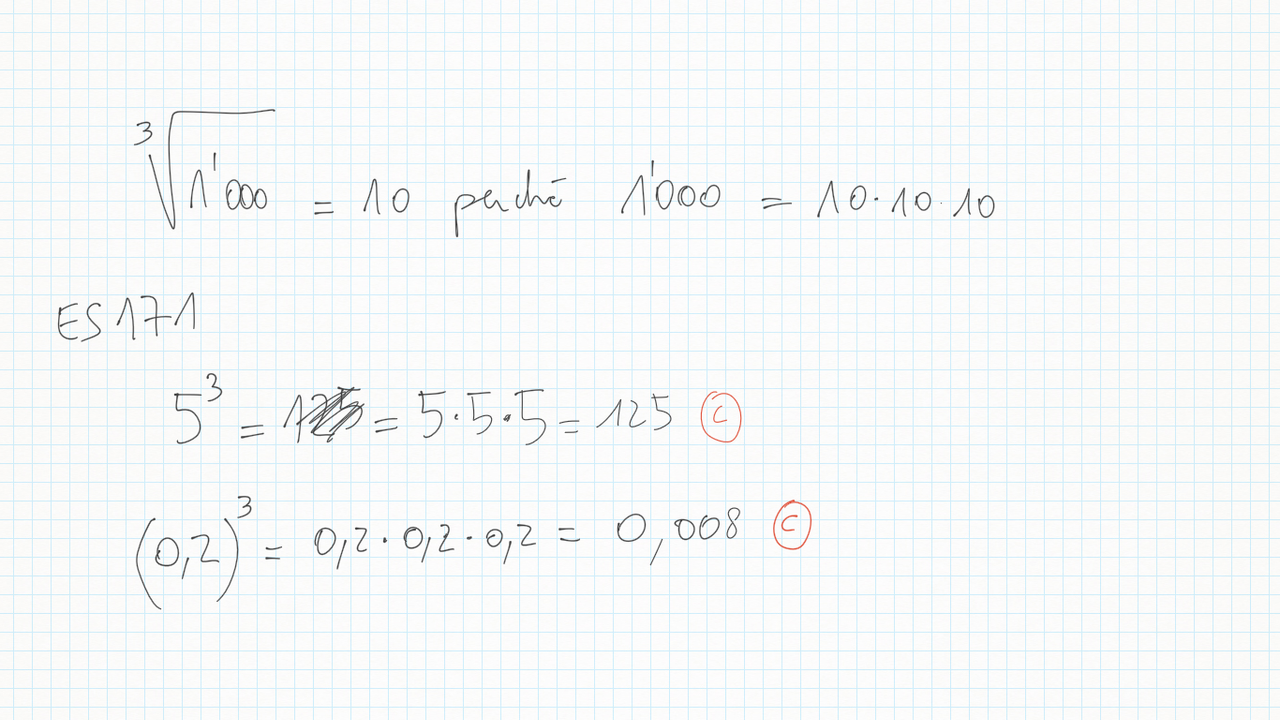 ³√1'000 = 10 perché 1'000 = 10·10·10
ES 171
5³ = 125 = 5·5·5 = 125 C
(0,2)³ = 0,2·0,2·0,2 = 0,008 C